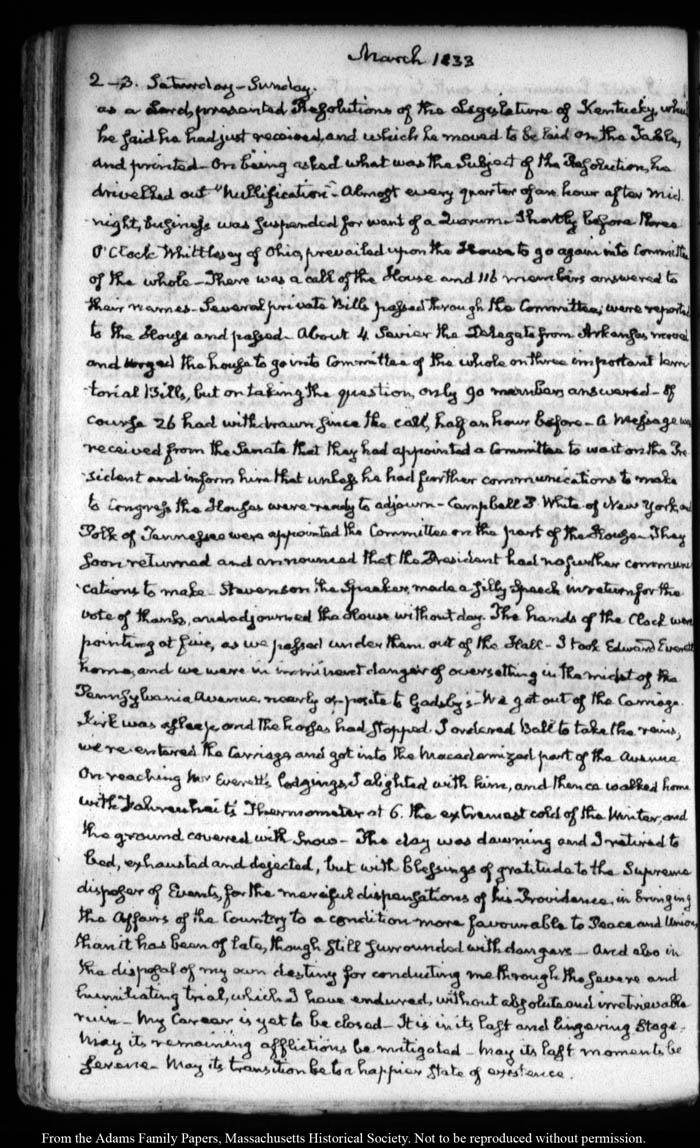 March 1833
2–3. Saturday–Sunday.
as a Lord, presented Resolutions of the Legislature of Kentucky, which
he said he had just received, and which he moved to be laid on the Table,
and printed– On being asked what was the Subject of the Resolution, he
drivelled out "Nullification"– Almost every quarter of an hour after mid
night, business was suspended for want of a Quorum– Shortly before three
O'Clock Whittlesey of Ohio, prevailed upon the House to go again into Committee
of the whole– There was a call of the House and 116 members answered to
their names– Several private Bills passed through the Committee, were reported
to the House and passed– About 4. Sevier the Delegate from Arkansas moved
and urged the house to go into Committee of the whole on three important terri
torial Bills, but on taking the question, only 90 members answered– Of
course 26 had withdrawn since the call, half an hour before– A Message was
received from the Senate that they had appointed a Committee to wait on the Pre
sident and inform him that unless he had further communications to make
to Congress the Houses were ready to adjourn– Campbell P White of New York and
Polk of Tennessee were appointed the Committee on the part of the House– They
soon returned and announced that the President had no further communi
cations to make– Stevenson the Speaker, made a silly Speech in return for the
vote of thanks, and adjourned the House without day. The hands of the Clock were
pointing at five, as we passed under them out of the Hall– I took Edward Everett
home, and we were in imminent danger of oversetting in the midst of the
Pennsylvania Avenue, nearly opposite to Gadsby's– We got out of the Carriage.
Kirk was asleep, and the horses had stopped. I ordered Ball to take the reins,
we re-entered the Carriage, and got into the Macadamized part of the Avenue.
On reaching Mr Everett's lodgings, I alighted with him, and thence walked home
with Fahrenheit's Thermometer at 6. the extremest cold of the Winter, and
the ground covered with Snow– The day was dawning and I retired to
bed, exhausted and dejected, but with blessings of gratitude to the Supreme
disposer of Events, for the merciful dispensations of his Providence, in bringing
the Affairs of the Country to a condition more favourable to Peace and Union,
than it has been of late, though still surrounded with dangers– And also in
the disposal of my own destiny for conducting me through the severe and
humiliating trial, which I have endured, without absolute and irretrievable
ruin– My Career is yet to be closed– It is in its last and lingering Stage.
May its remaining afflictions be mitigated– May its last moments be
serene– May its transition be to a happier state of existence.
From the Adams Family Papers, Massachusetts Historical Society. Not to be reproduced without permission.